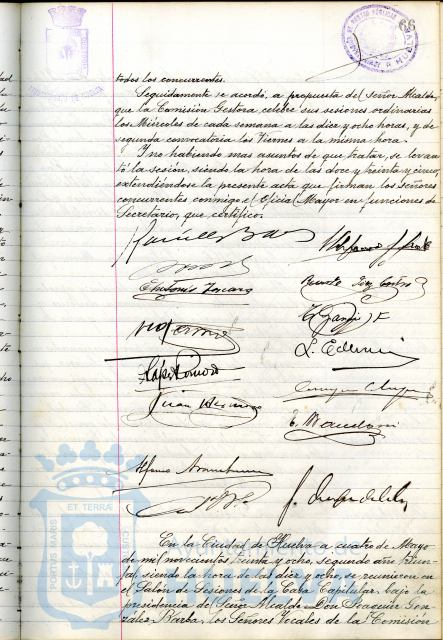 66
todos los concurrentes.
Seguidamente se acordó, a propuesta del Señor Alcalde,
que la Comisión Gestora celebre sus sesiones ordinarias
los Miércoles de cada semana a las diez y ocho horas, y de
segunda convocatoria los Viernes a la misma hora.
Y no habiendo mas asuntos de que tratar, se levan
tó la sesión, siendo la hora de las doce y treinta y cinco,
extendiéndose la presente acta que firman los Señores
concurrentes conmigo el Oficial Mayor en funciones de
Secretario, que certifico.
Antonio Toscano
L.
López Donoso
Juan
Enrique
E. Mandani
Alfonso Aramburu
J.
En la Ciudad de Huelva a cuatro de Mayo
de mil novecientos treinta y ocho, segundo año triun-
fal, siendo la hora de las diez y ocho, se reunieron en
el Salón de Sesiones de la Casa Capitular, bajo la
presidencia del Señor Alcalde Don Joaquin Gon
zalez Barba, los Señores Vocales de la Comisión
PORTUS MARIS ET TERRÆ CUSTODIA
Ayuntamiento de